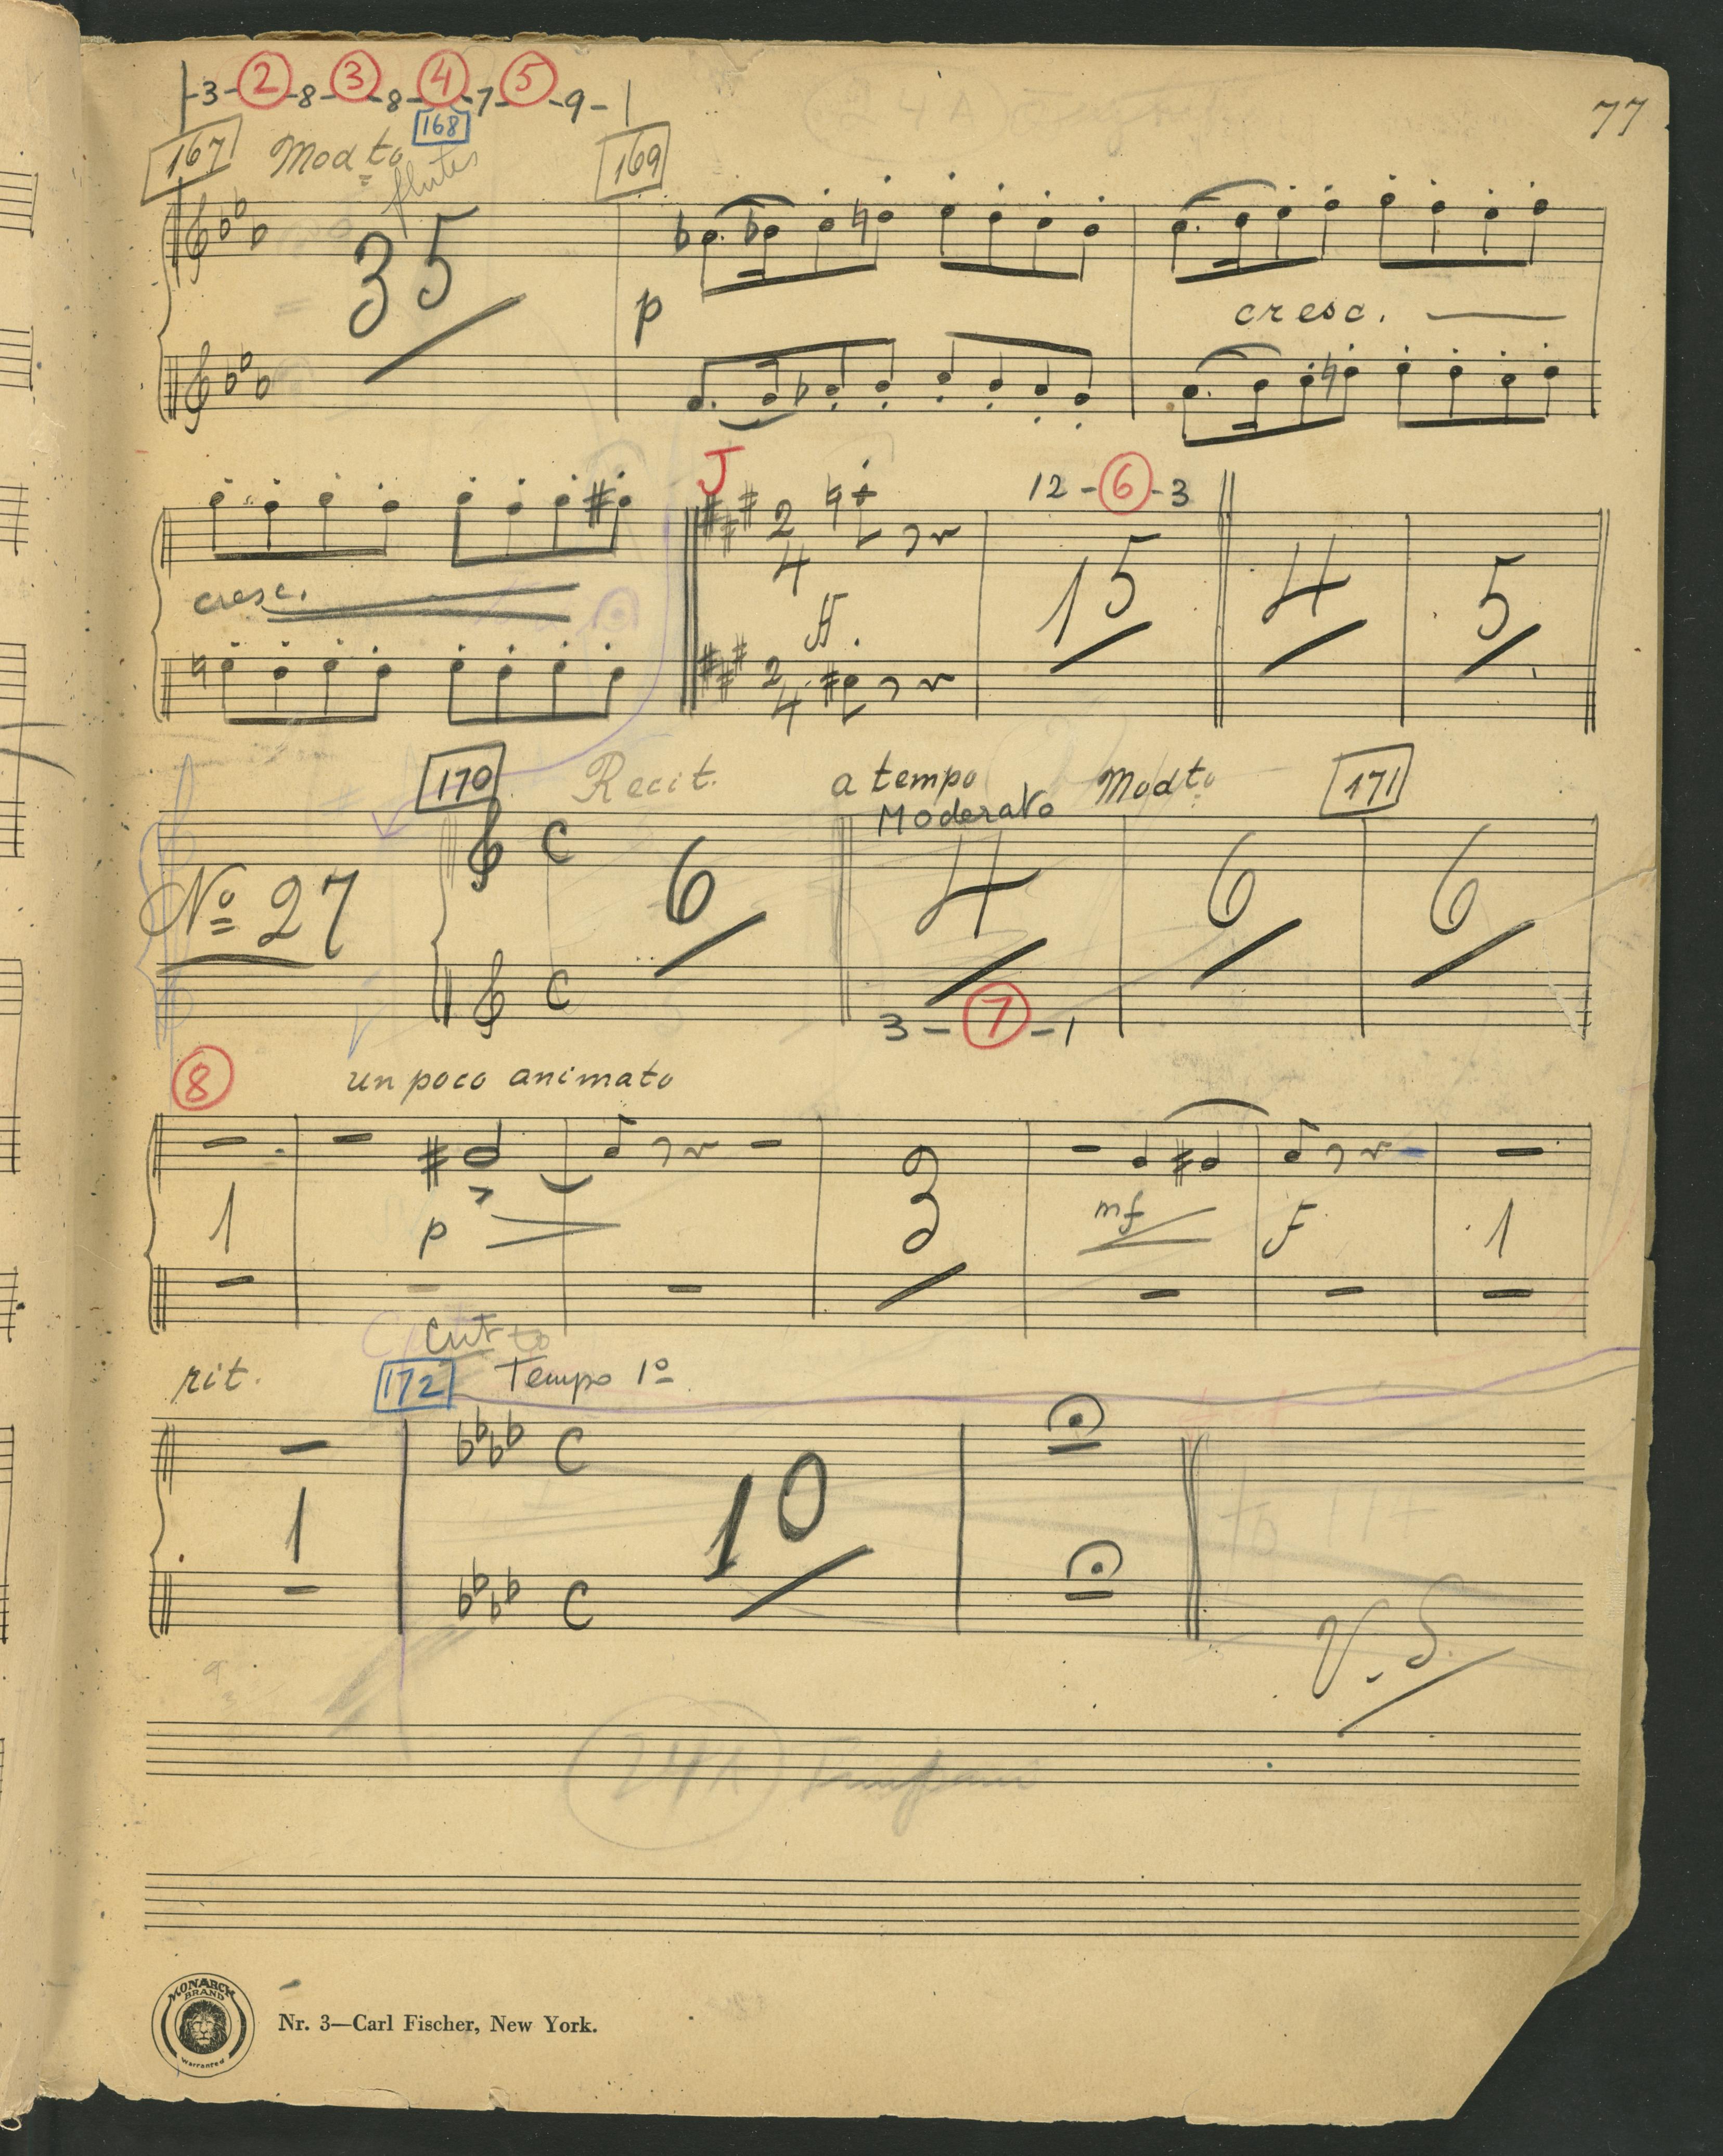 77
-3-②-8-③-8-④-7-⑤-9-
168
167 Modto flutes 169
35
p
cresc.
J 12-⑥-3
2 4
cresc. ff 15 4 5
2 4
170 Recit. a tempo Modto 171
Moderato
No 27 C 6 4 6 6
C
3-⑦-1
⑧ un poco animato
1 p 3 mf f 1
cut to
rit. 172 Tempo 1o
C
1 10
C
to 174
V.S.
24A Timpani
MONARCH
BRAND
Warranted
Nr. 3—Carl Fischer, New York.